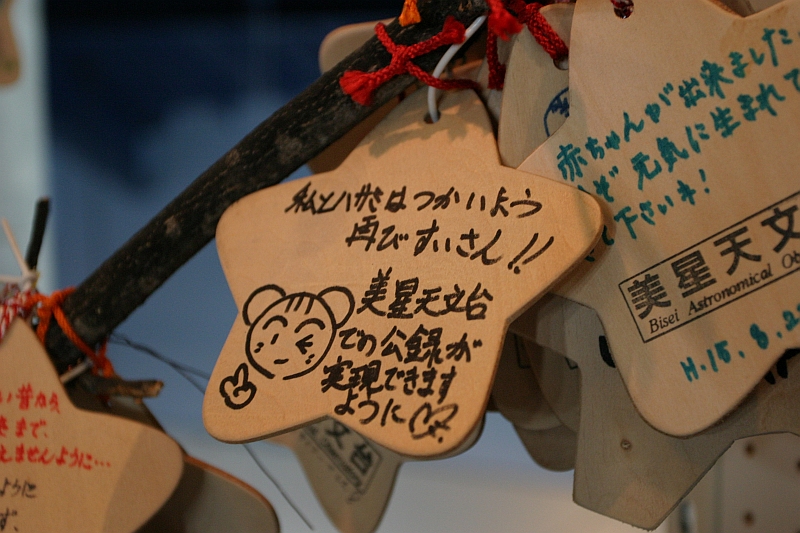 私とハサミはつかいよう
再びすいさん!!
美星天文台
での公録が
実現できます
ように
赤ちゃんが出来ました
元気に生まれて
下さいネ!
美星天文
Bisei Astronomical Ob
H.15.8.2
い昔から
きまで、
えませんように…
ように
す、
文台